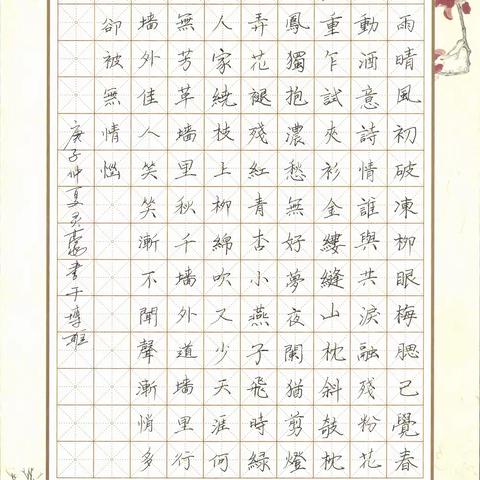 雨晴風初破凍柳眼梅腮已覺春
動酒意詩情誰與共淚融殘粉花
重乍試夾衫金縷縫山枕斜敧枕
鳳獨抱濃愁無好夢夜闌猶剪燈
弄花褪殘紅青杏小燕子飛時綠
人家繞枝上柳綿吹又少天涯何
無芳草墙里秋千墙外道墙里行
墙外佳人笑笑漸不聞聲漸悄多
卻被無情惱
庚子仲夏灵書于博雅